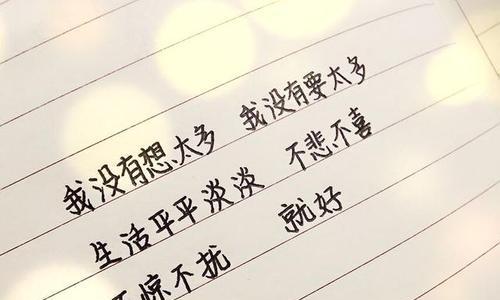 我没有想太多 我没有要太多
生活平平淡淡 不悲不喜
惊不扰 就好